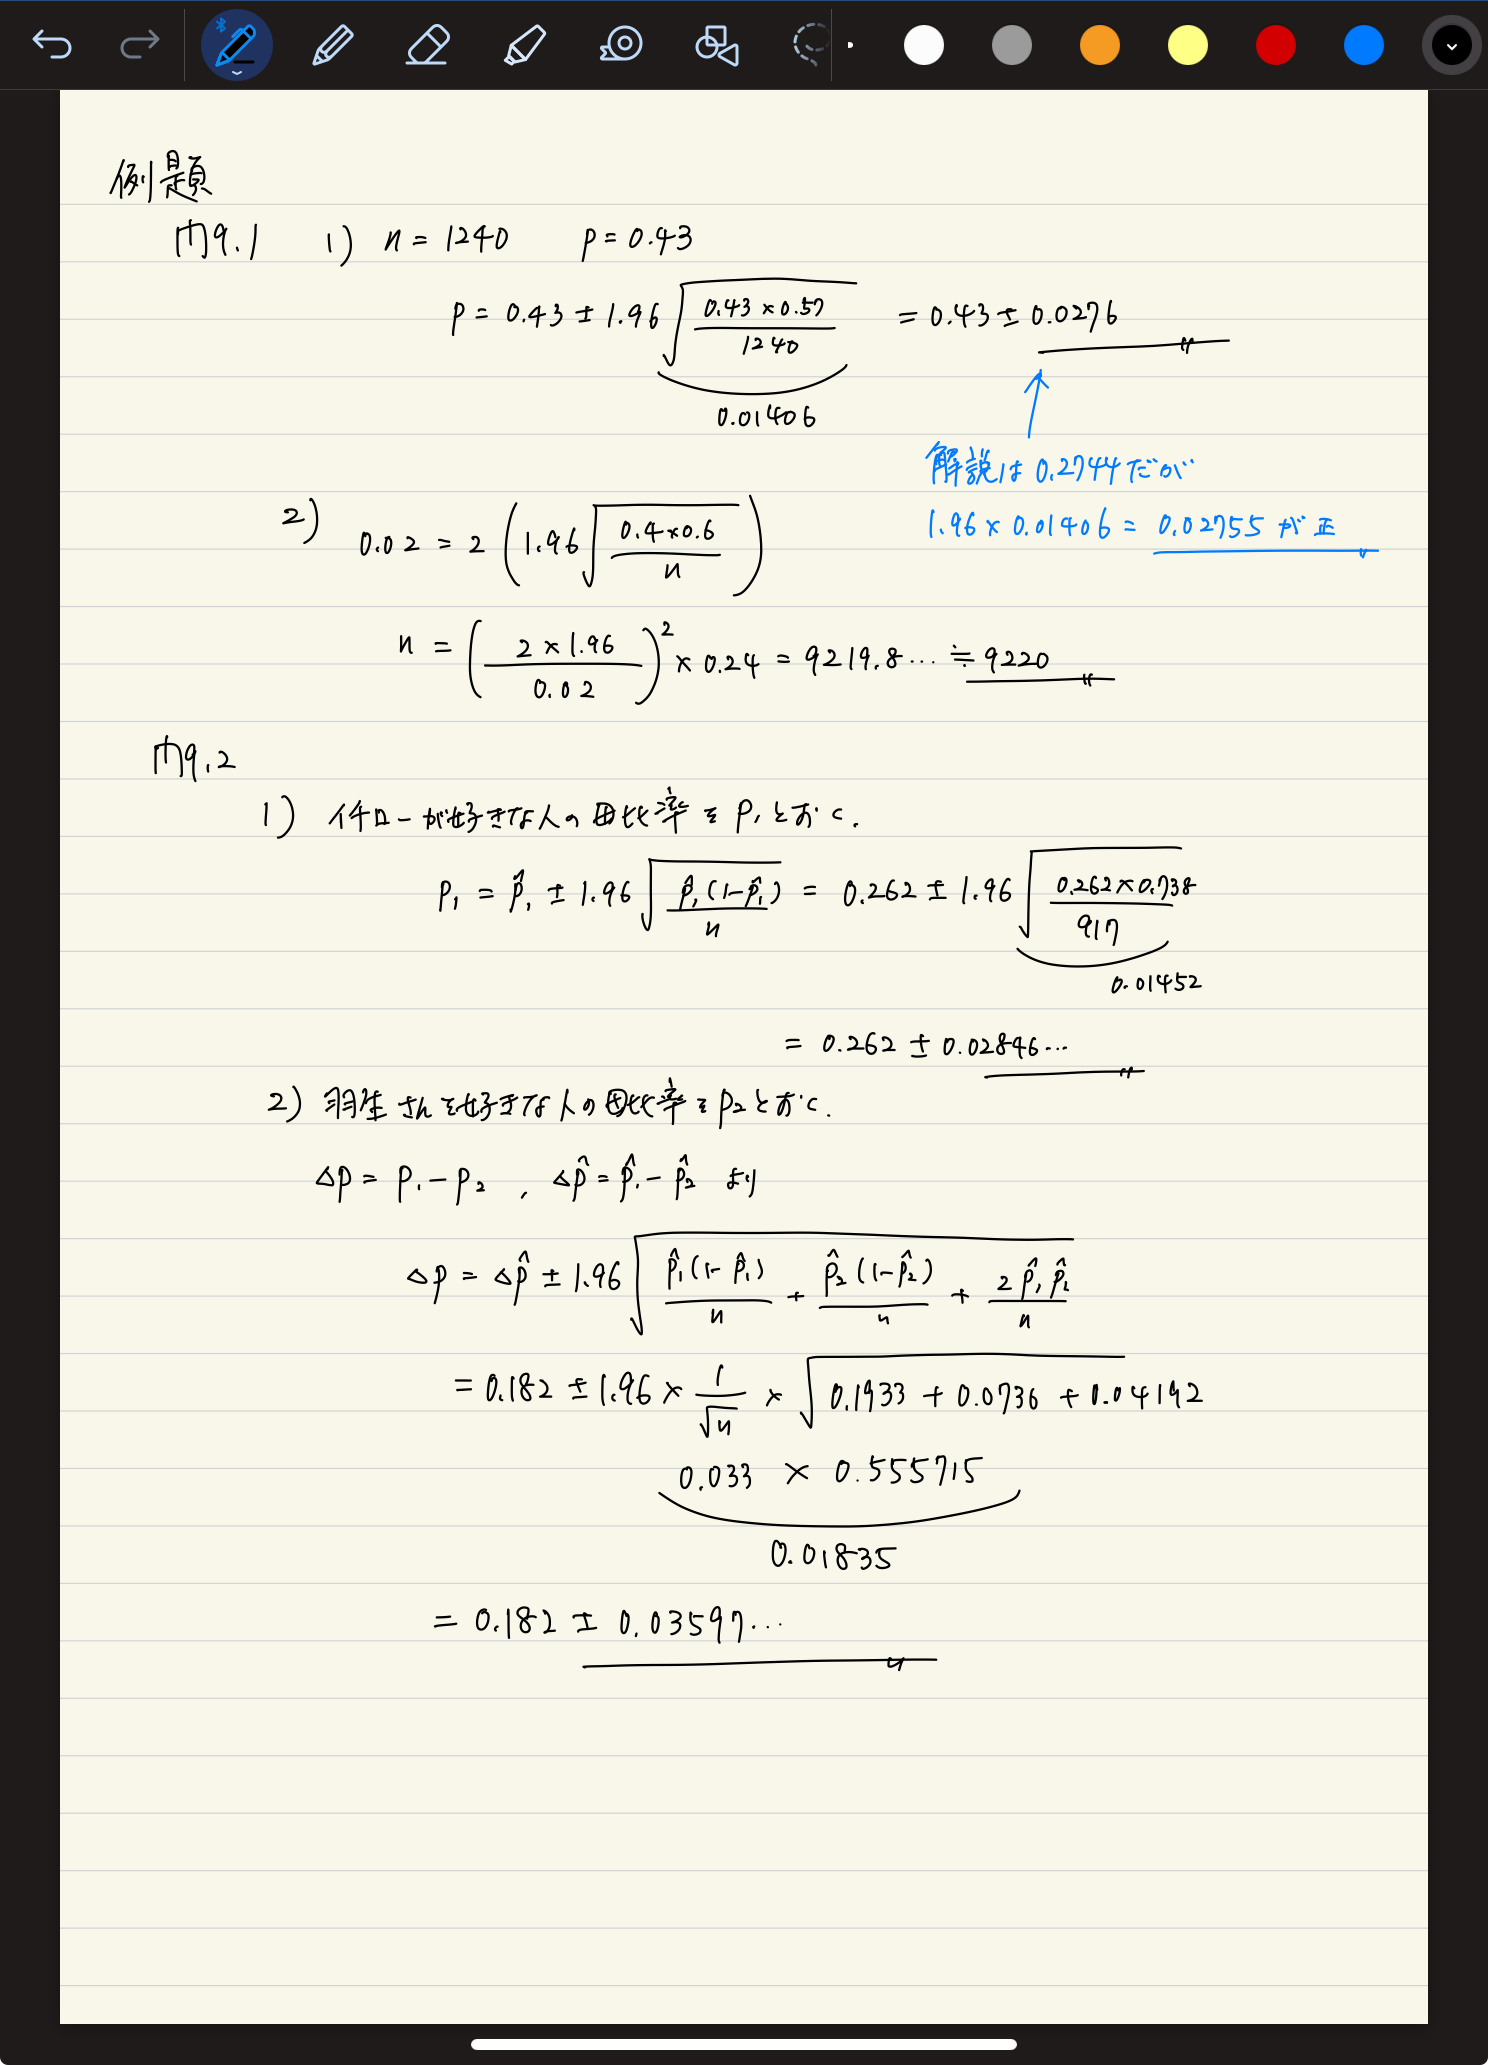 例題
問9.1 1) n = 1240 p = 0.43
p = 0.43 ± 1.96 √(0.43 × 0.57 / 1240) = 0.43 ± 0.0276
0.01406
解説は 0.2744 だが
1.96 × 0.01406 = 0.02755 が正
2) 0.02 = 2 (1.96 √(0.4 × 0.6 / n))
n = (2 × 1.96 / 0.02)² × 0.24 = 9219.8… ≒ 9220
問9.2
1) イチローが好きな人の母比率を P₁ とおく.
P₁ = p̂₁ ± 1.96 √(p̂₁(1-p̂₁) / n) = 0.262 ± 1.96 √(0.262 × 0.738 / 917)
0.01452
= 0.262 ± 0.02846…
2) 羽生さんを好きな人の母比率を p₂ とおく.
△p = P₁ - p₂ , △p̂ = p̂₁ - p̂₂ より
△p = △p̂ ± 1.96 √(p̂₁(1-p̂₁) / n + p̂₂(1-p̂₂) / n + 2p̂₁p̂₂ / n)
= 0.182 ± 1.96 × 1/√n × √(0.1933 + 0.0736 + 0.04192)
0.033 × 0.555715
0.01835
= 0.182 ± 0.03597…